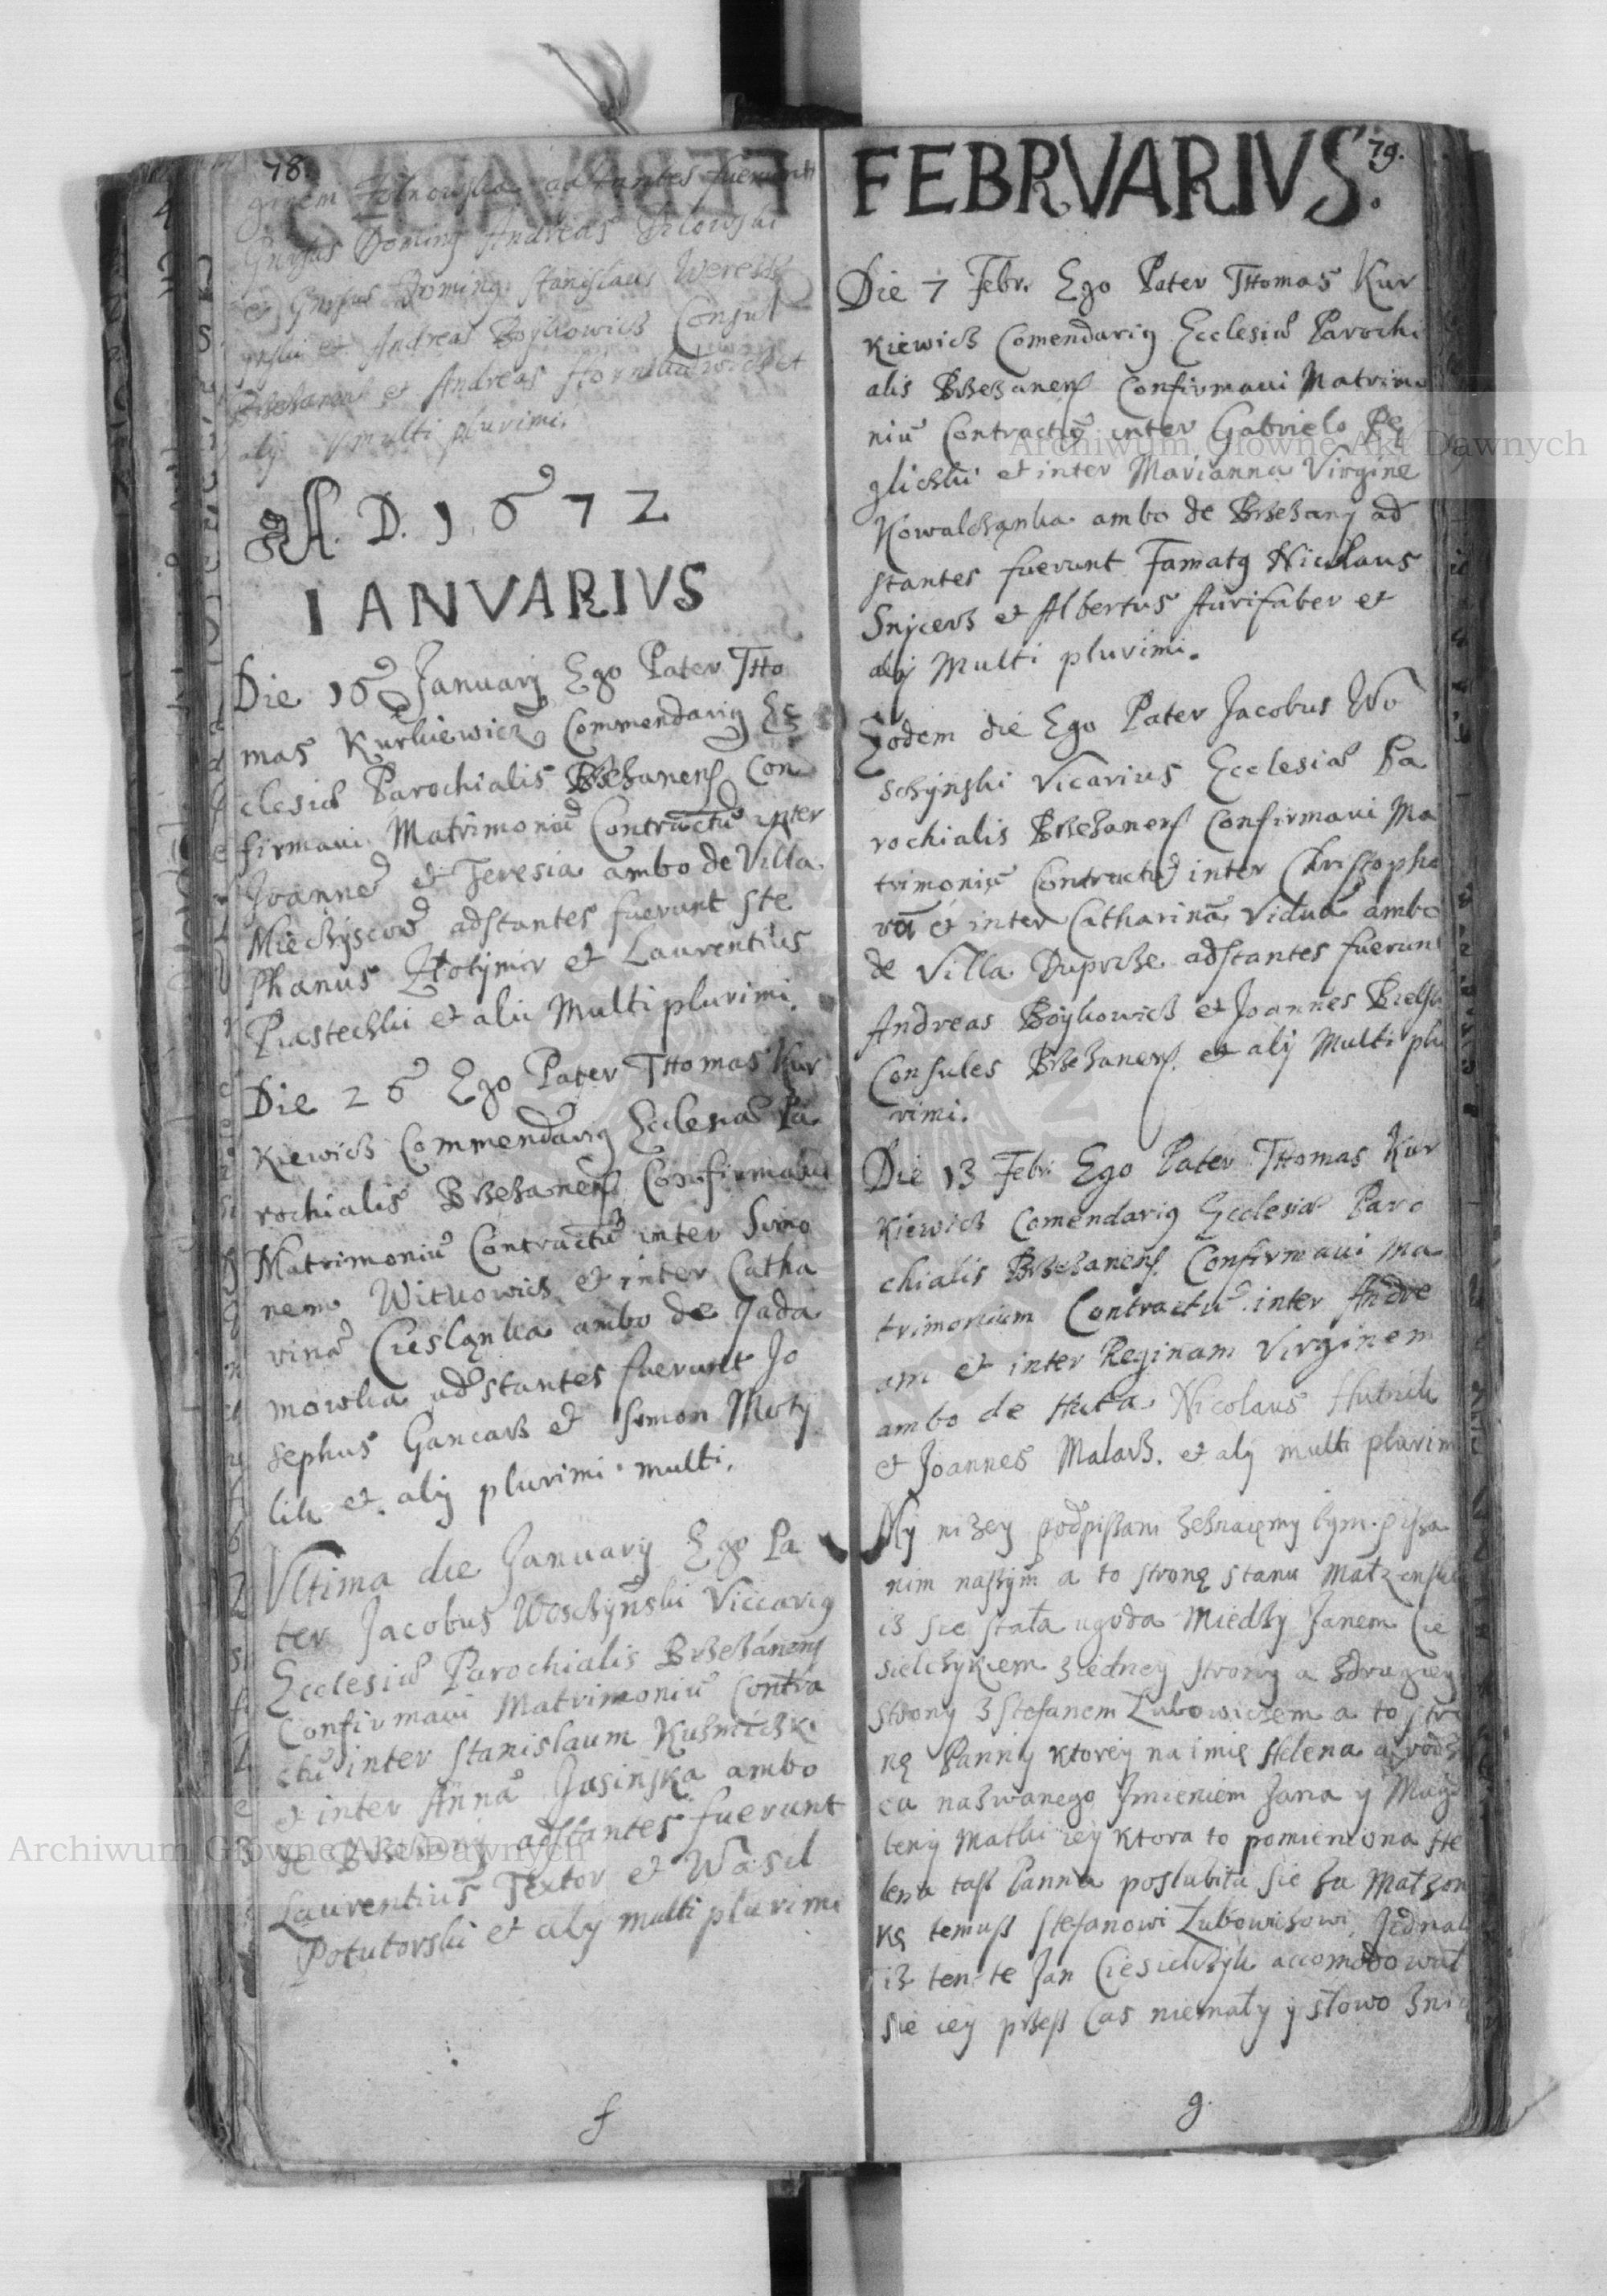 78.
ginem adstantes fuerunt
Dominq Andreas
et Dominq Stanislaus
et Andreas Boykowicz Consul
et Andreas et
alÿ multi plurimi.
A. D. 1672
IANVARIVS
Die 16 Januarÿ Ego Pater Tho
mas Kurkiewicz Commendariq Ec
clesiæ Parochialis Brzezanens Con
firmaui Matrimoniū Contractū inter
Joannē et Teresia ambo de Villa
adstantes fuerunt Ste
phanus et Laurentius
et alii Multi plurimi.
Die 26 Ego Pater Thomas Kur
kiewicz Commendariq Ecclesiæ Pa
rochialis Brzezanens Confirmaui
Matrimoniū Contractū inter Simo
nem Witwowicz et inter Catha
rinā Ciesląnka ambo de Jada
mowka adstantes fuerunt Jo
sephus Gancarz et Simon Moty
lik et alÿ plurimi multi.
Vltima die Januarÿ Ego Pa
ter Jacobus Woschynski Viccariq
Ecclesiæ Parochialis Brzezanens
Confirmaui Matrimoniū Contra
ctū inter Stanislaum
et inter Annā Jasinska ambo
de Brzezanÿ adstantes fuerunt
Laurentius Textor et Wasil
Potutorski et alÿ multi plurimi
f
79.
FEBRVARIVS.
Die 7 Febr. Ego Pater Thomas Kur
kiewicz Comendariq Ecclesiæ Parochi
alis Brzezanens Confirmaui Matrimo
niū Contractū inter Gabrielē Pę
gliczki et inter Marianna Virginē
Kowalchąnka ambo de Brzezanÿ ad
stantes fuerunt Famatq Nicolaus
Snÿcerz et Albertus Aurifaber et
alÿ Multi plurimi.
Eodem die Ego Pater Jacobus Wo
schÿnski Vicarius Ecclesiæ Pa
rochialis Brzezanens Confirmaui Ma
trimoniū Contractū inter Christopho
rū et inter Catharinā Viduā ambo
de Villa adstantes fuerunt
Andreas Boÿkowicz et Joannes
Consules Brzezanens. et alÿ Multi plu
rimi.
Die 13 Febr: Ego Pater Thomas Kur
kiewicz Comendariq Ecclesiæ Paro
chialis Brzezanens. Confirmaui Ma
trimonium Contractū inter Andre
am et inter Reginam Virginem
ambo de Huta Nicolaus Hutnik
et Joannes Malarz. et alÿ multi plurimi
Mÿ nizeÿ podpiszani zeznaięmÿ tÿm pisza
nim naszÿm a to stronę stanu Małzenski
iz sie stała ugoda Miedzÿ Janem Cie
sielczÿkiem ziedneÿ stronÿ a zdrugieÿ
stronÿ z Stefanem Lubowiczem a to stro
nę Pannÿ ktoreÿ na imię Helena a rodz
ca nazwanego Imieniem Jana ÿ Magd
lenÿ Matki ieÿ ktora to pomieniona He
lena tasz Panna poslubiła sie za Małzon
kę temusz Stefanowi Lubowiczowi, Jednak
iz ten te Jan Ciesielczÿk accomodował
sie ieÿ przesz Cas niemałÿ ÿ słowo
g.
Archiwum Główne Akt Dawnych
Archiwum Główne Akt Dawnych